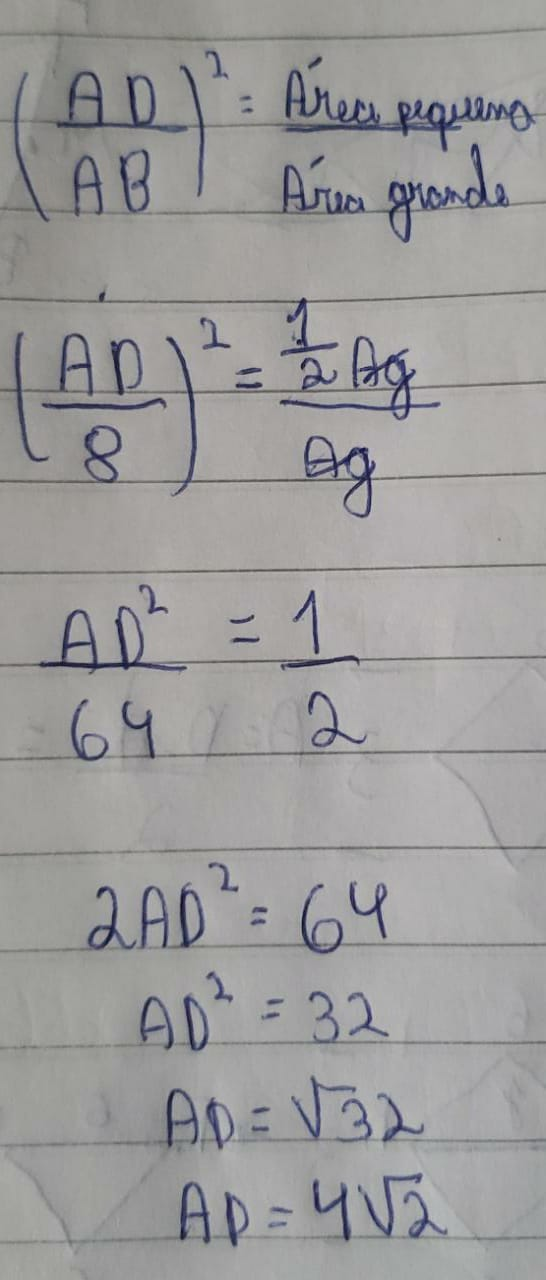 (AD/AB)² = Área pequena/Área grande
(AD/8)² = 1/2 Ag/Ag
AD²/64 = 1/2
2AD² = 64
AD² = 32
AD = √32
AD = 4√2